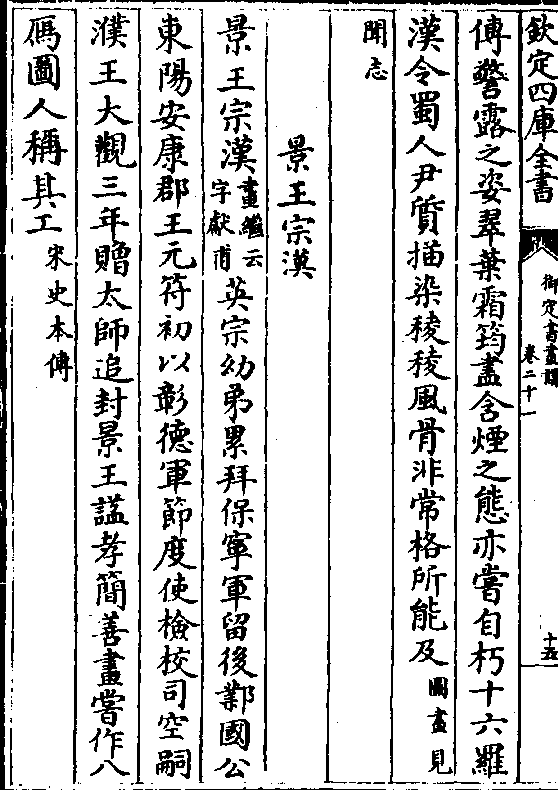 欽定四庫全書
御定書畫譜
卷二十一
十五
傅警露之姿翠葉霜筠盡含煙之態亦嘗自朽十六羅
漢令蜀人尹質描染稜稜風骨非常格所能及圖畫見
聞志
景王宗漢
景王宗漢畫繼云字獻甫英宗幼弟累拜保寧軍留後鄴國公
東陽安康郡王元符初以彰德軍節度使檢校司空嗣
濮王大觀三年贈太師追封景王諡孝簡善畫嘗作八
鴈圖人稱其工宋史本傳